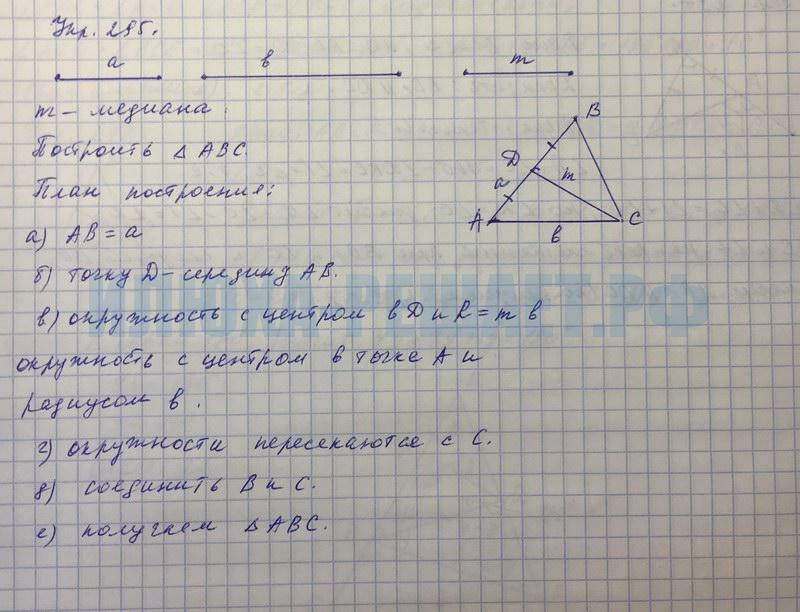 Упр. 295.
a в m
m – медиана.
Построить △ ABC.
План построения:
а) AB = a
б) точку D – середину AB.
в) окружность с центром в D и R = m в
окружность с центром в точке A и
радиусом в.
г) окружности пересекаются с C.
д) соединить B и C.
е) получаем △ ABC.
B
D
m
a
A
C
в